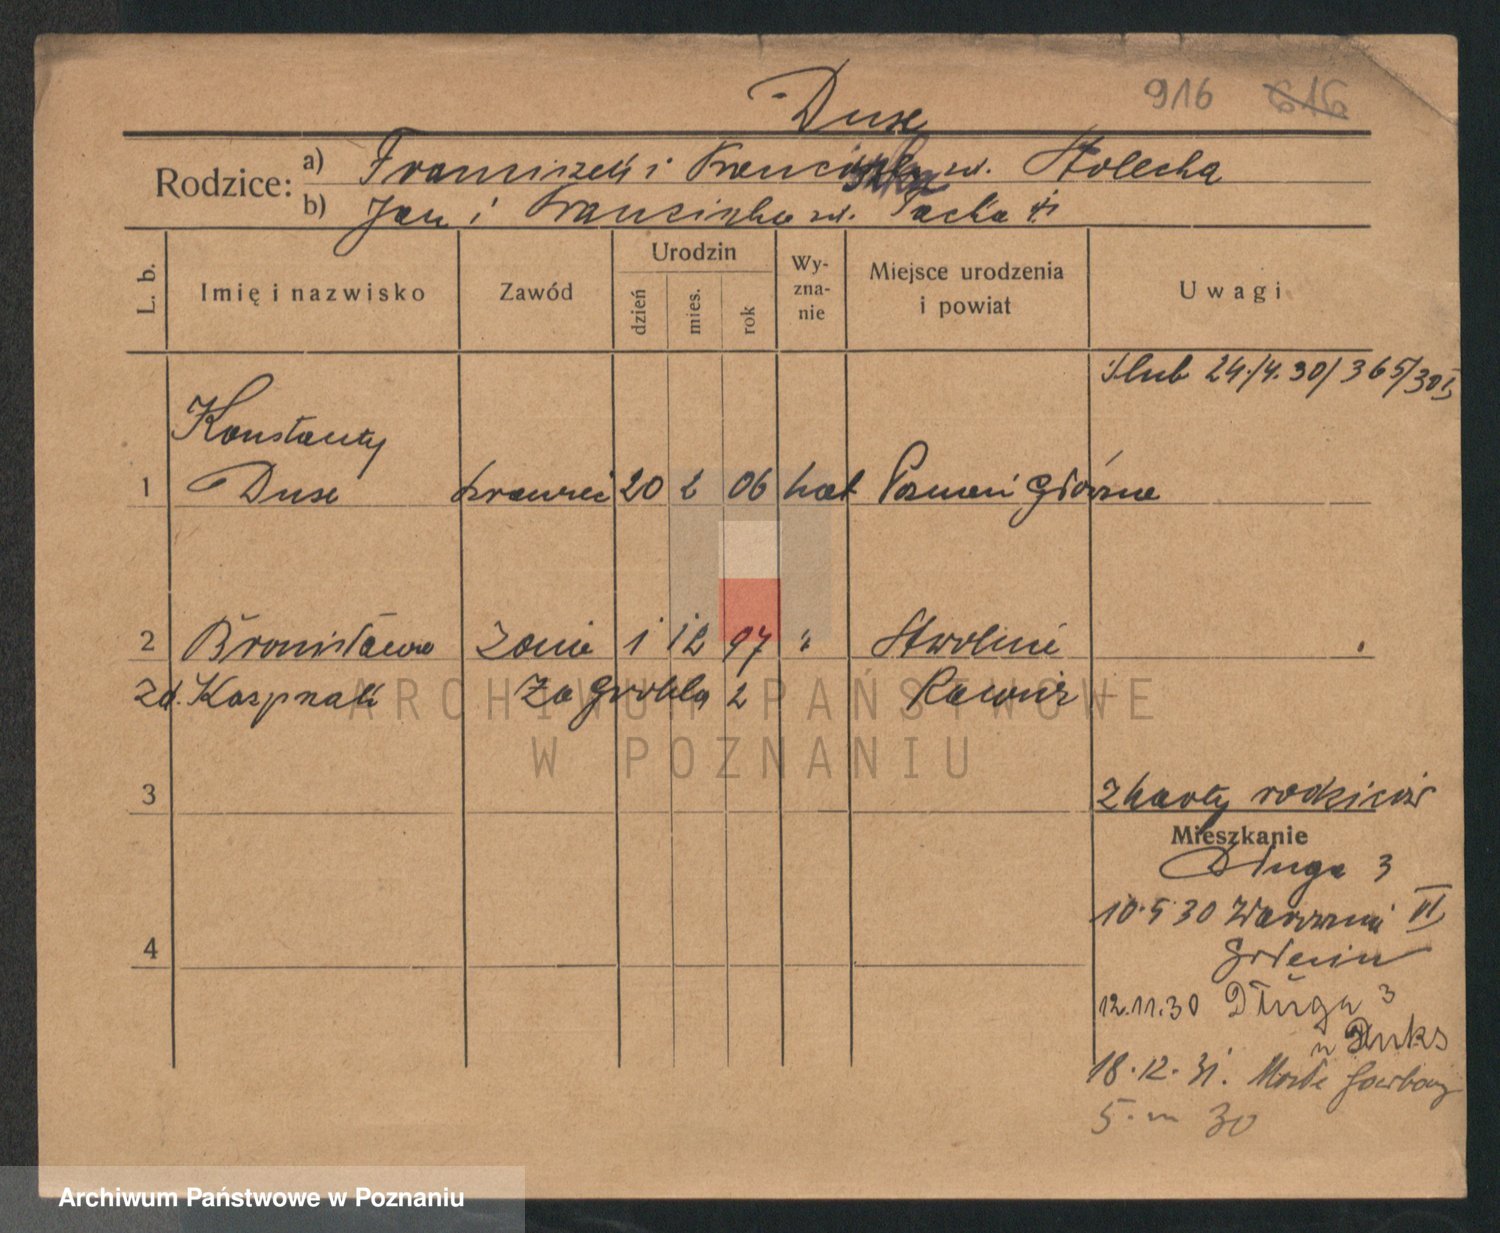 916 616
Dux
Rodzice: a) Franciszek i Franciszka zd. Stolecka
b) Jan i Franciszka zd. Packa
L. b. Imię i nazwisko Zawód Urodzin dzień mies. rok Wy-zna-nie Miejsce urodzenia i powiat Uwagi
Ślub 24./4.30/365/30
Konstanty
1 Dux krawiec 20 2 06 kat Poznań Główna
2 Bronisława żona 1 12 97 "
zd. Kasprzak Zagrobla 2 Rawicz
3 Z karty rodziców
Mieszkanie
Długa 3
10.5.30 VI
4
12.11.30 Długa 3
18.12.31.
5. m 30
ARCHIWUM PAŃSTWOWE
W POZNANIU
Archiwum Państwowe w Poznaniu